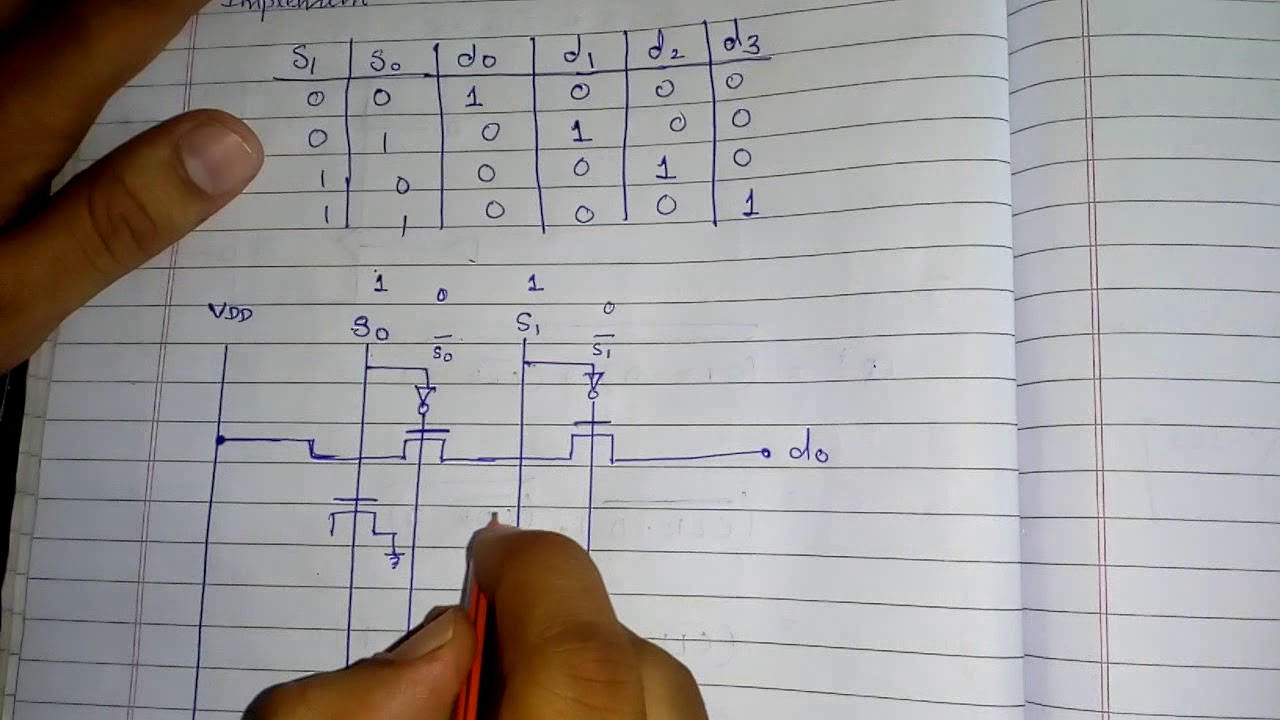 Implement
S1 S0 d0 d1 d2 d3
0 0 1 0 0 0
0 1 0 1 0 0
1 0 0 0 1 0
1 1 0 0 0 1
1 0 1 0
VDD S0 S̅0 S1 S̅1
d0